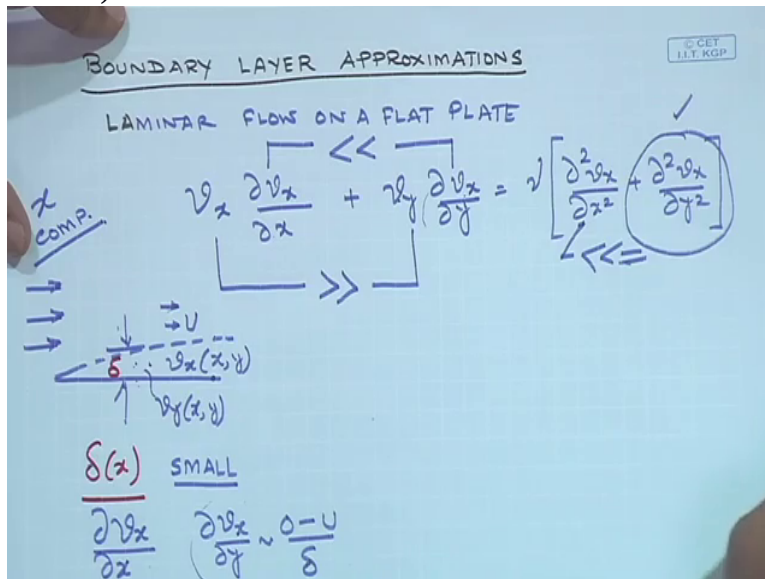 BOUNDARY LAYER APPROXIMATIONS
© CET
I.I.T. KGP
LAMINAR FLOW ON A FLAT PLATE
<<
x
COMP.
vₓ ∂vₓ/∂x + v_y ∂vₓ/∂y = ν [∂²vₓ/∂x² + ∂²vₓ/∂y²]
<<=
>>
U
δ vₓ(x,y)
v_y(x,y)
δ(x) SMALL
∂vₓ/∂x ∂vₓ/∂y ~ 0-U/δ